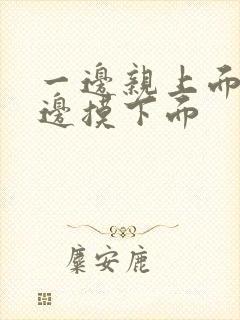 一邊親上面
邊摸下面
麋安鹿